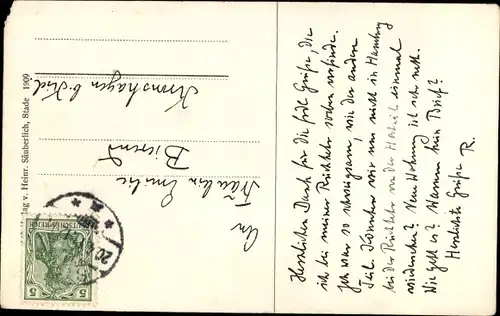 Herzlichen Dank für die frdl. Grüße, die
ich bei meiner Rückkehr soeben vorfinde.
Ich war so schweigsam, wie der andere
Teil. Könnten wir uns nicht in Hamburg
bei der Rückkehr von der Heimat einmal
wiedersehen? Neue Wohnung ist sehr nett.
Wie geht es? Warum kein Brief?
Herzlichste Grüße R.
An
Fräulein Emilie
Kronshagen b. Kiel.
v. Heinr. Säuberlich, Stade 1909
DEUTSCHES REICH
5 5